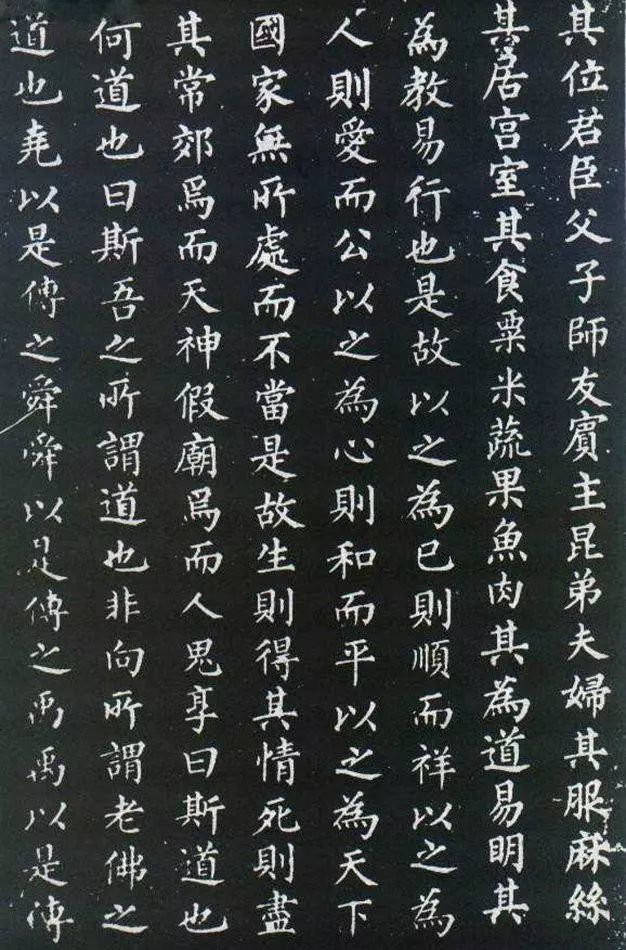 其位君臣父子師友賓主昆弟夫婦其服麻絲
其居宫室其食粟米蔬果魚肉其為道易明其
為教易行也是故以之為已則順而祥以之為
人則愛而公以之為心則和而平以之為天下
國家無所處而不當是故生則得其情死則盡
其常郊焉而天神假廟焉而人鬼享曰斯道也
何道也曰斯吾之所謂道也非向所謂老佛之
道也堯以是傳之舜舜以是傳之禹禹以是傳